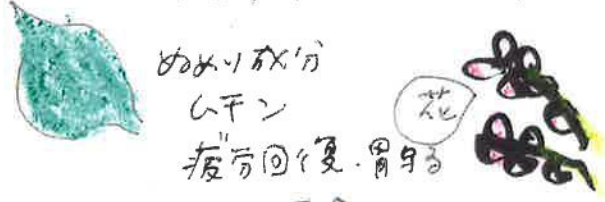 ぬめり成分
ムチン
花
疲労回復・胃守る